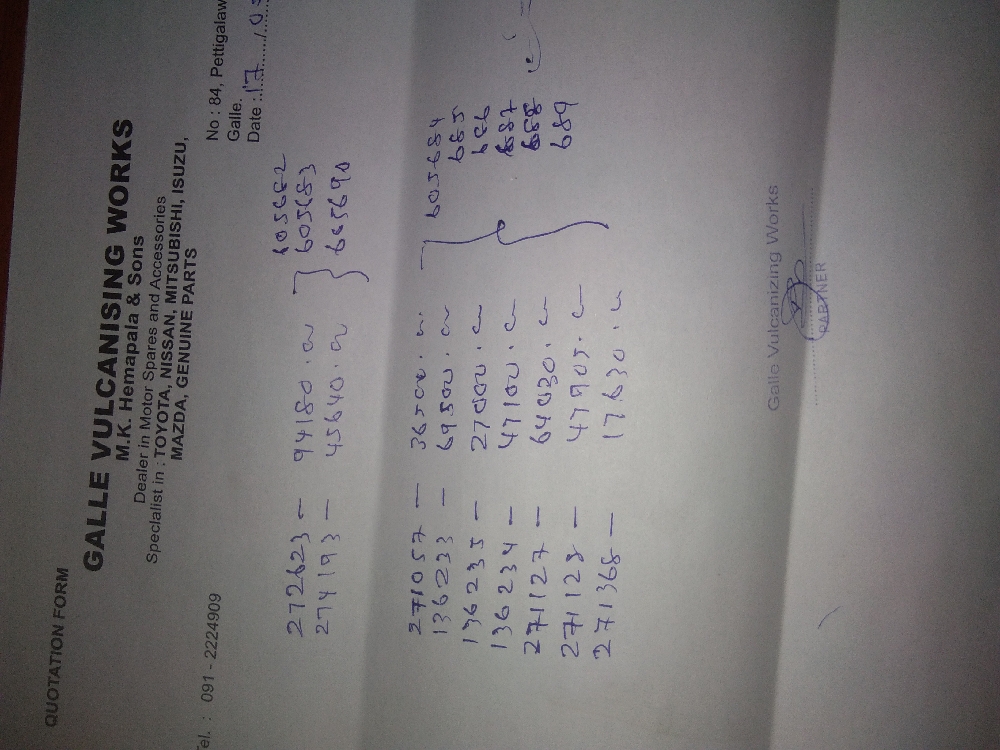 QUOTATION FORM
GALLE VULCANISING WORKS
M.K. Hemapala & Sons
Dealer in Motor Spares and Accessories
Specialist in : TOYOTA, NISSAN, MITSUBISHI, ISUZU,
MAZDA, GENUINE PARTS
Tel. : 091 - 2224909
No : 84, Pettigalaw
Galle.
Date : 17
272623 — 94180.00 605682
274193 — 45640.00 605683
605690
271057 — 36500.00 605684
136233 — 69500.00 685
136235 — 27000.00 686
136234 — 47100.00 687
271127 — 64030.00 688
271128 — 47905.00 689
271368 — 17630.00
Galle Vulcanizing Works
PARTNER